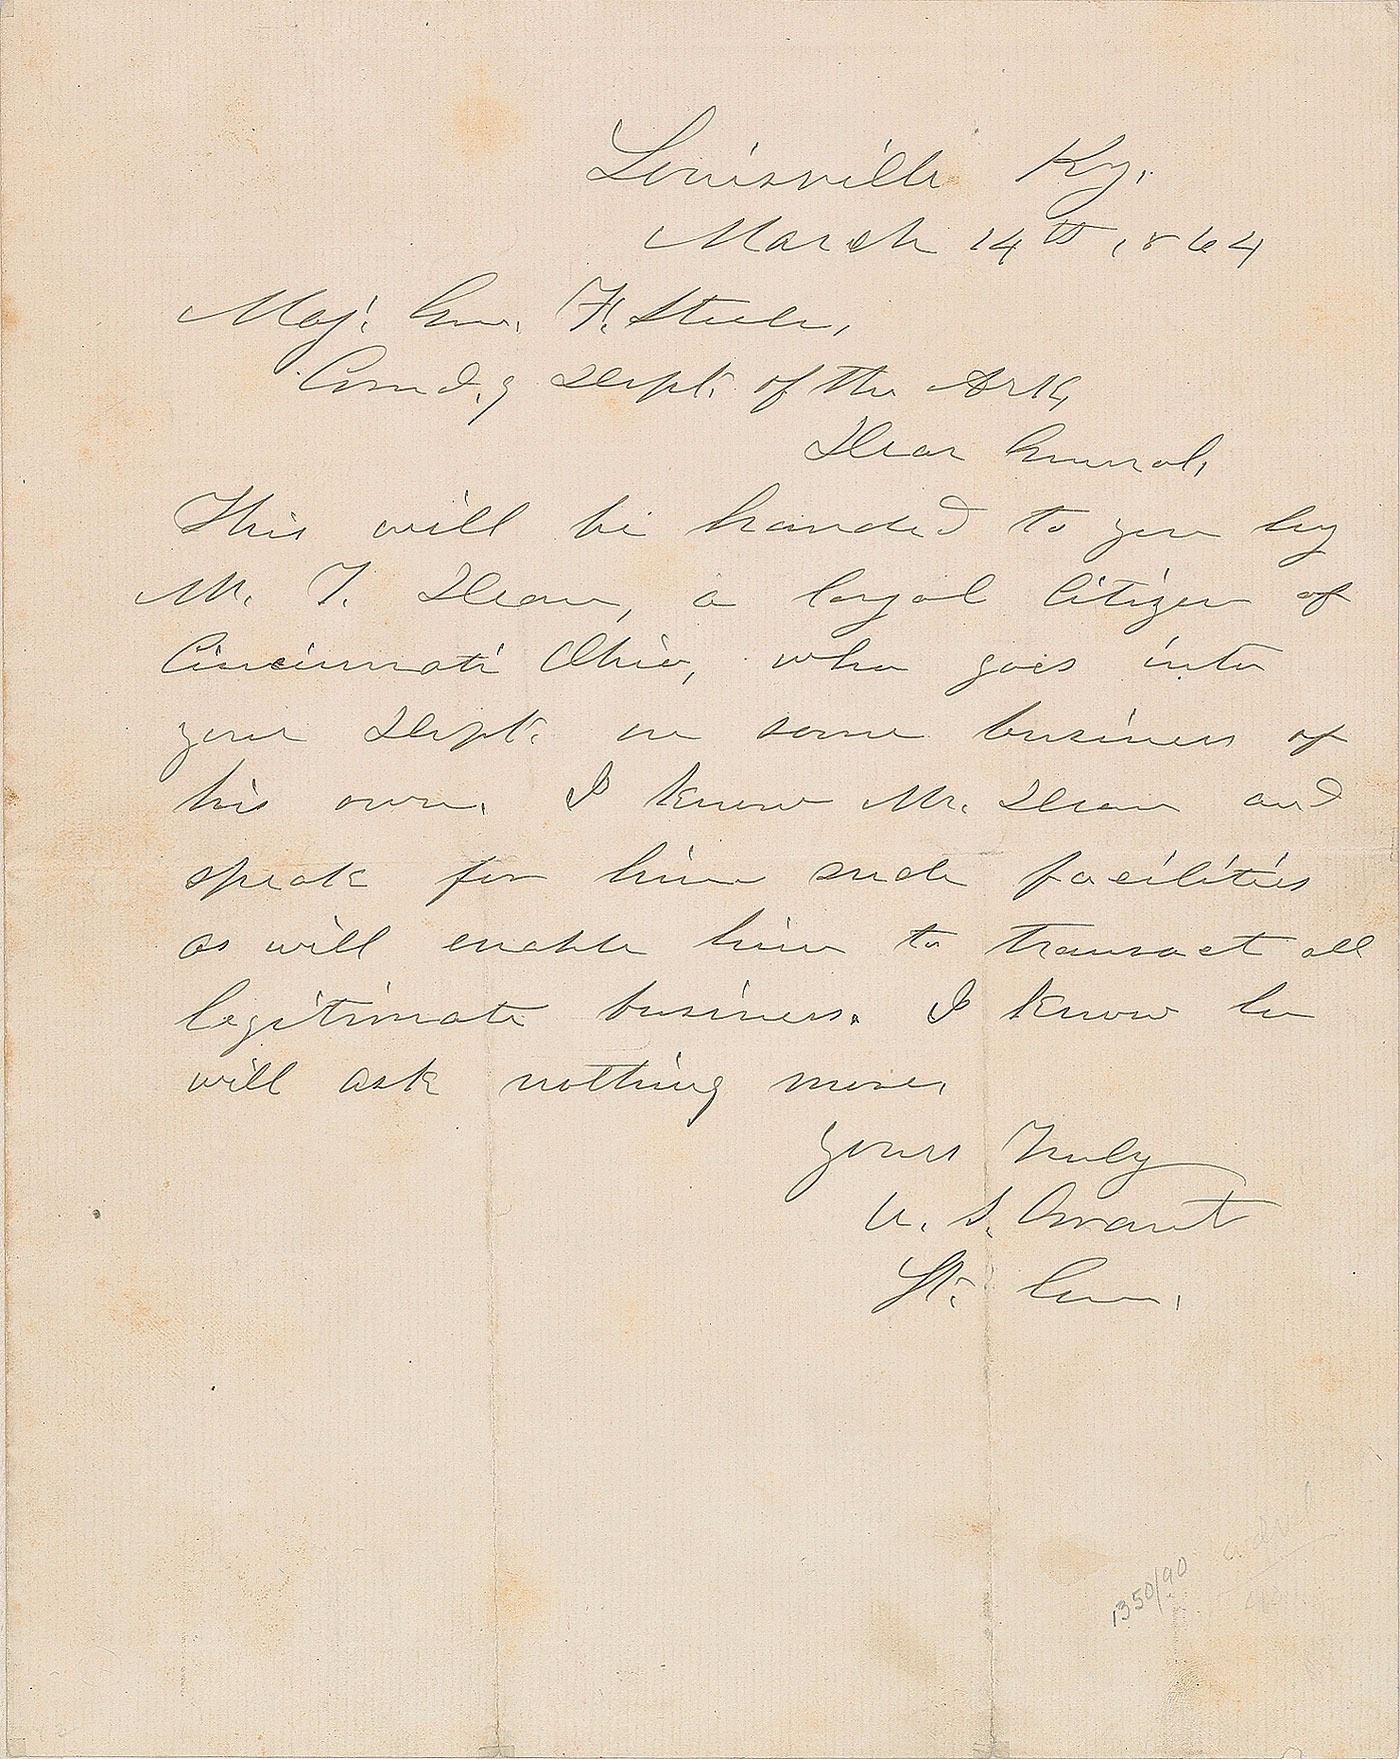 Louisville Ky.
March 14th, 1864
Maj. Gen. F. Steele,
Comd.g Dept. of the Ark,
Dear General,
This will be handed to you by
M. T. Dean, a loyal citizen of
Cincinnati Ohio, who goes into
your Dept. on some business of
his own. I know Mr. Dean and
speak for him such facilities
as will enable him to transact all
legitimate business. I know he
will ask nothing more.
Yours Truly
U. S. Grant
Lt. Gen.
1350/90